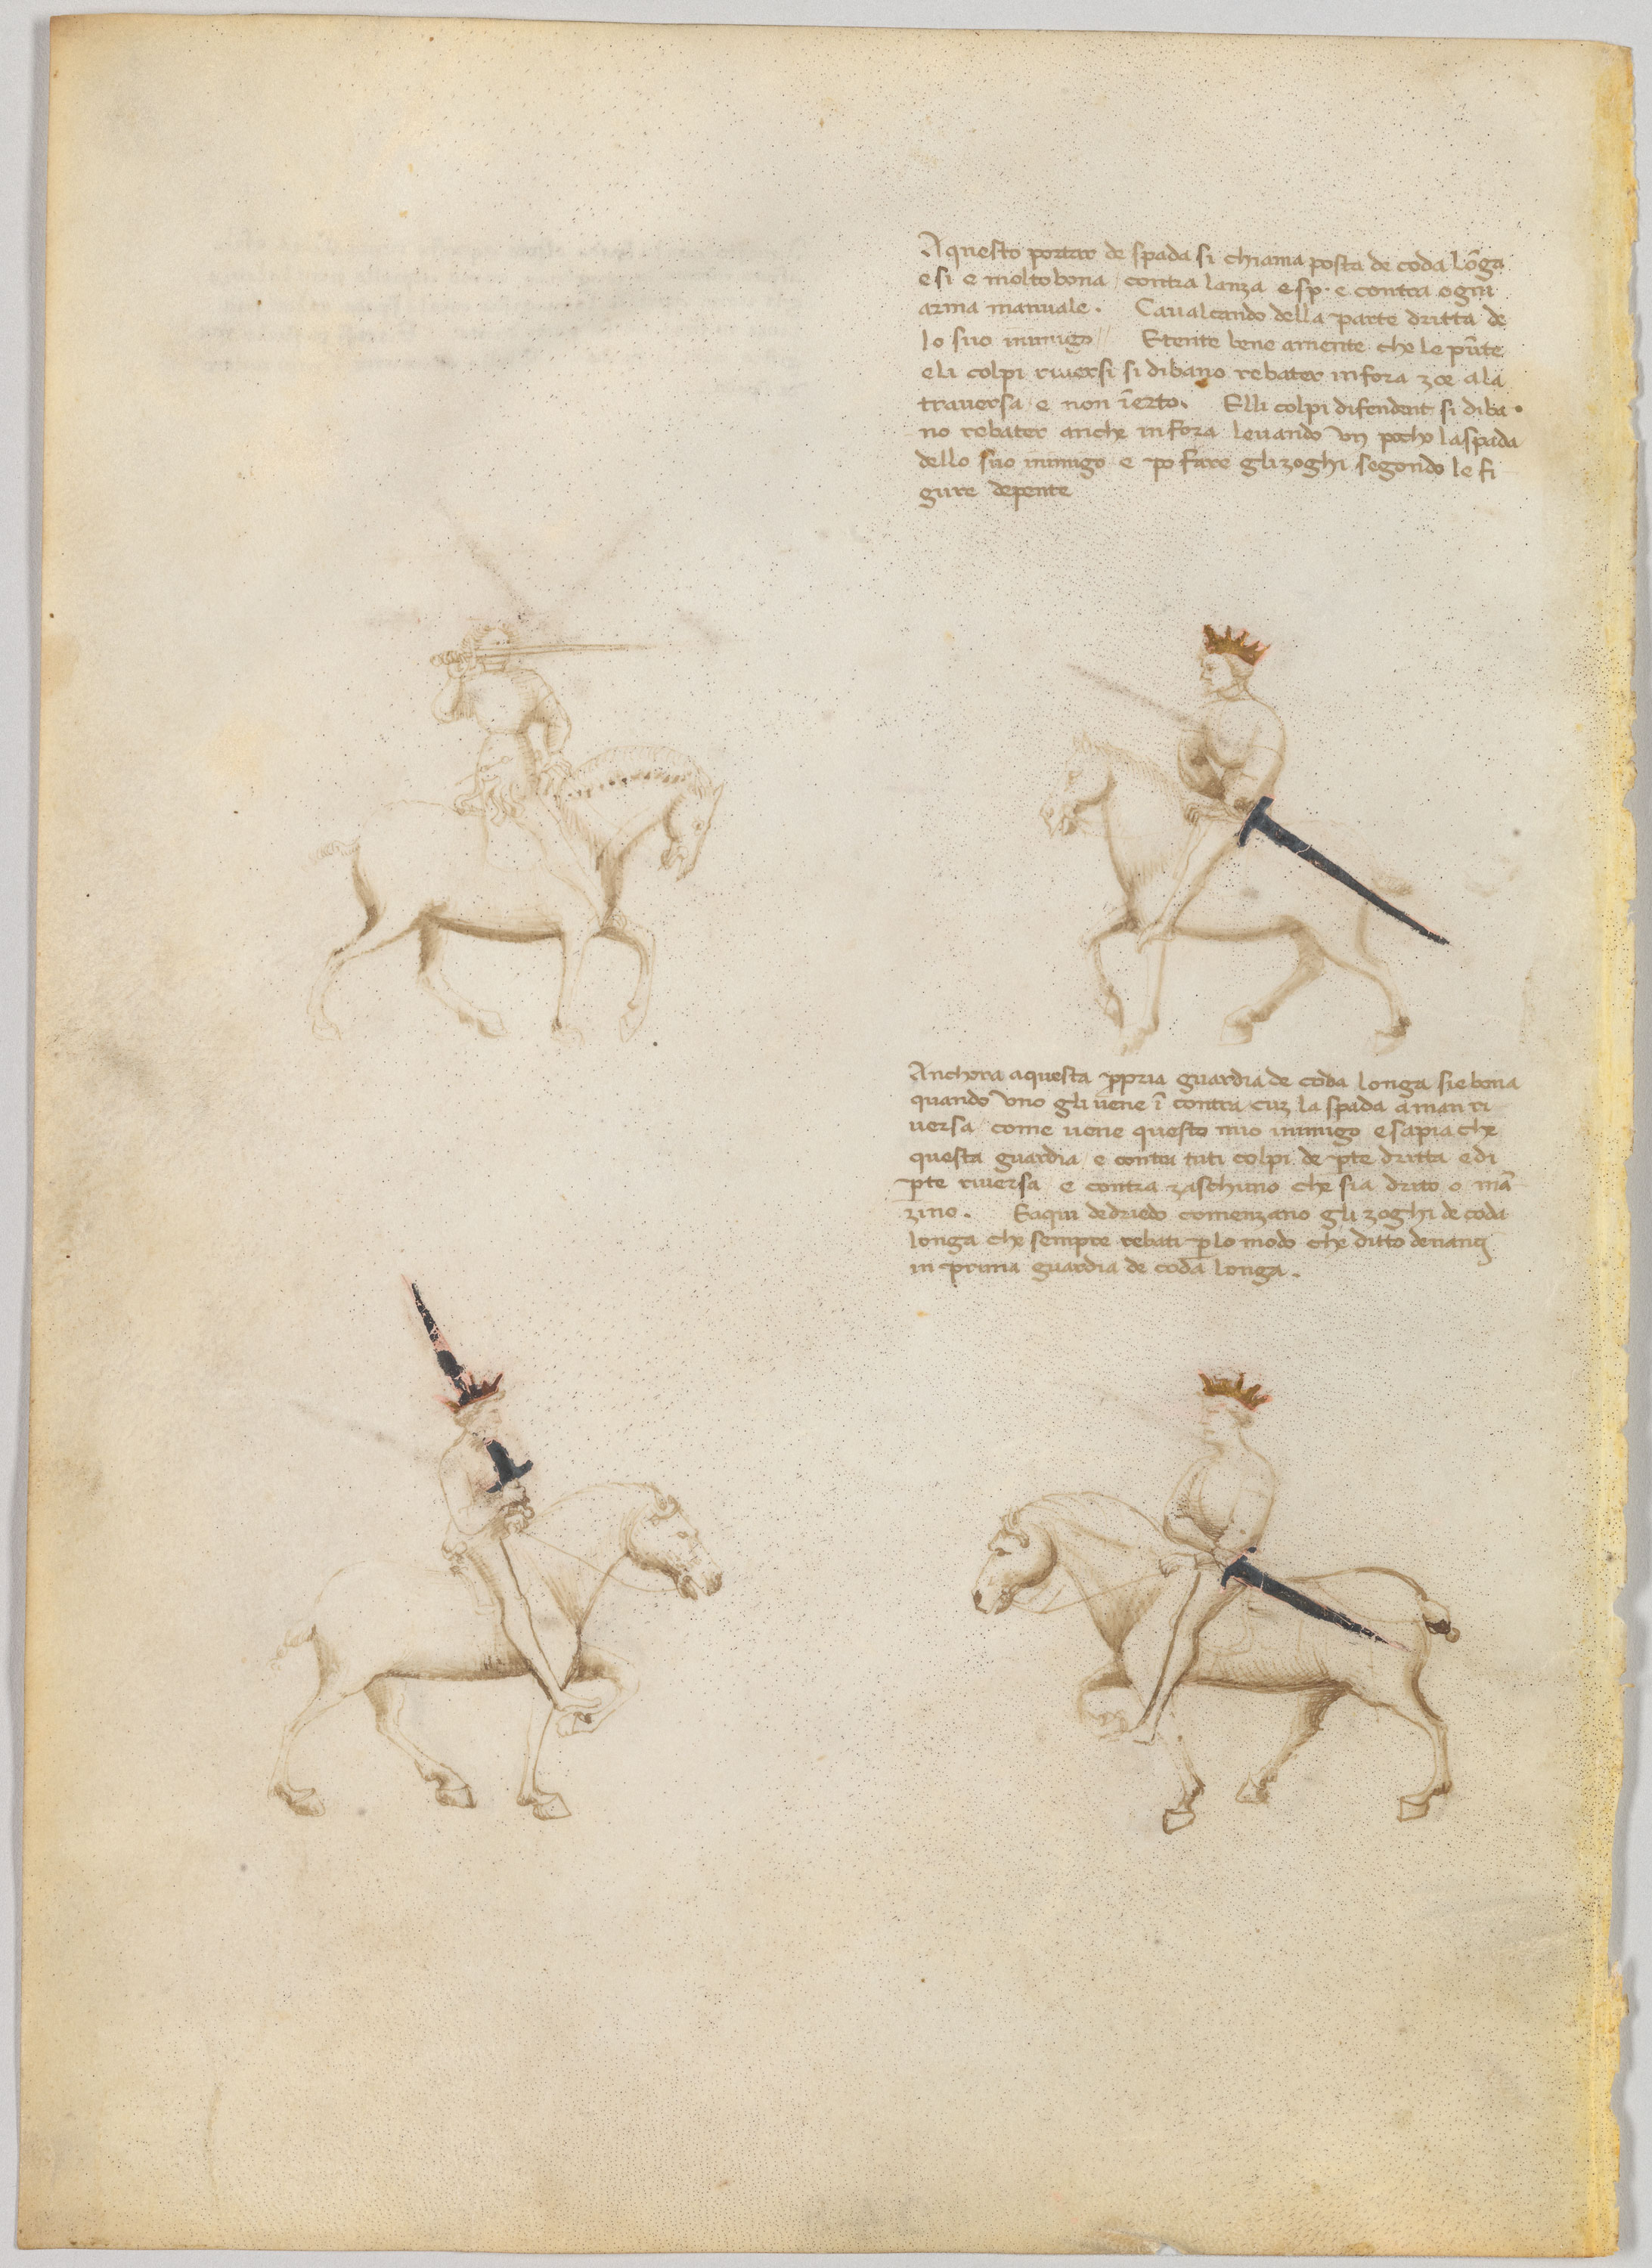 Aquesto portar de spada si chiama posta de coda lōga
e si e molto bona / contra lanza e sp. e contra ogni
arma manuale. Caualcando della parte dritta de
lo suo inimigo // E tente bene a mente che le pūte
e li colpi riuersi si dibano rebater in fora zoe a la
trauersa e non ī erto. E lli colpi difendent si diba
no rebater anche in fora leuando vn pocho la spada
dello suo inimigo e po fare gli zoghi segondo le fi
gure depente
Anchora aquesta ꝓpria guardia de coda longa si e bona
quando vno gli uene ī contra cuz la spada a man ri
uersa come uene questo mio inimigo e sapia che
questa guardia e contra tuti colpi de ꝑte dritta e di
ꝑte riuersa e contra zaschuno che sia drito o mā
zino. E aqui dedriedo comenzano gli zoghi de coda
longa che sempre rebati ꝑ lo modo che ditto denanz
in prima guardia de coda longa.